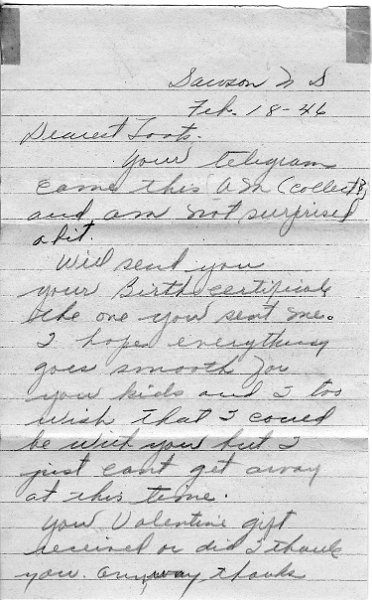 Dawson N D
Feb. 18-46
Dearest Toots.
Your telegram
came this AM (collect)
and am not surprised
a bit.
Will send you
your Birth certificate
the one you sent me.
I hope everything
goes smooth for
you kids and I too
wish that I could
be with you but I
just cant get away
at this time.
Your Valentine gift
received or did I thank
you. Anyway thanks